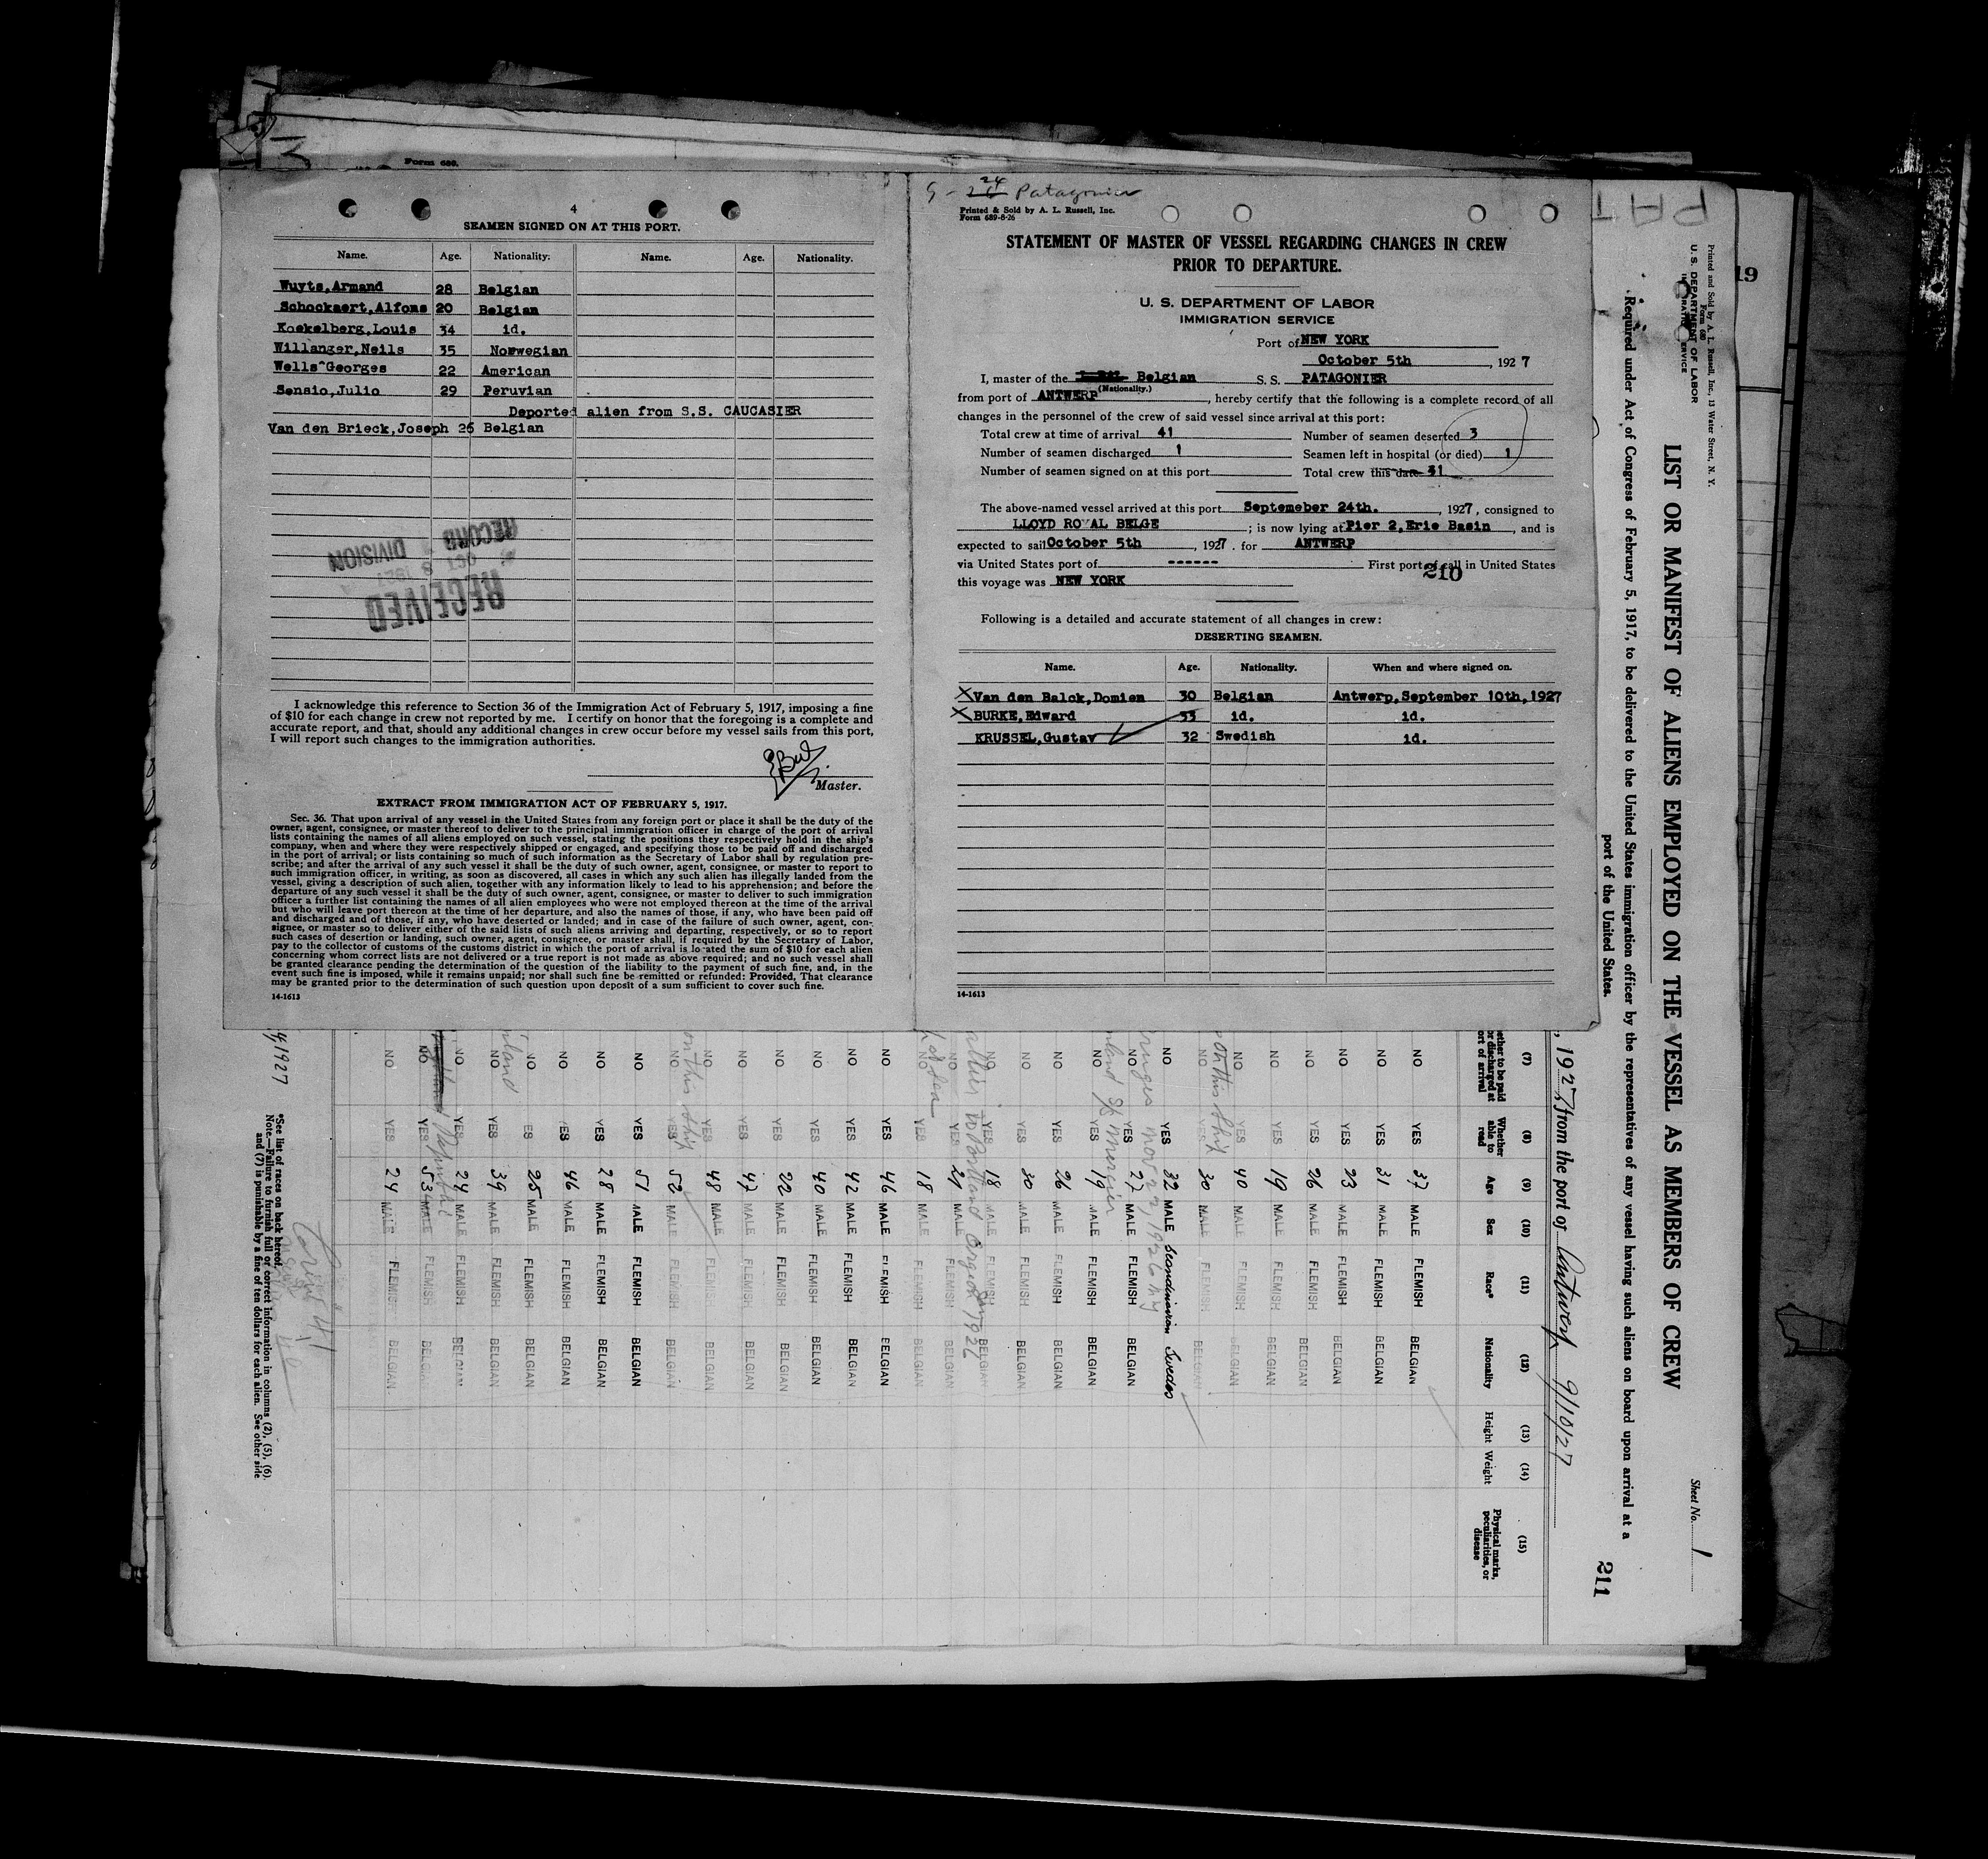 3
Form 689.
4
SEAMEN SIGNED ON AT THIS PORT.
Name. Age. Nationality. Name. Age. Nationality.
Wuyts,Armand 28 Belgian
Schockaert,Alfons 20 Belgian
Koekelberg,Louis 34 id.
Willanger,Neils 35 Norwegian
Wells Georges 22 American
Sensio,Julio 29 Peruvian
Deported alien from S.S. CAUCASIER
Van den Brieck,Joseph 26 Belgian
RECEIVED
OCT 8 1927
RECORD DIVISION
I acknowledge this reference to Section 36 of the Immigration Act of February 5, 1917, imposing a fine
of $10 for each change in crew not reported by me. I certify on honor that the foregoing is a complete and
accurate report, and that, should any additional changes in crew occur before my vessel sails from this port,
I will report such changes to the immigration authorities.
Master.
EXTRACT FROM IMMIGRATION ACT OF FEBRUARY 5, 1917.
Sec. 36. That upon arrival of any vessel in the United States from any foreign port or place it shall be the duty of the
owner, agent, consignee, or master thereof to deliver to the principal immigration officer in charge of the port of arrival
lists containing the names of all aliens employed on such vessel, stating the positions they respectively hold in the ship's
company, when and where they were respectively shipped or engaged, and specifying those to be paid off and discharged
in the port of arrival; or lists containing so much of such information as the Secretary of Labor shall by regulation pre-
scribe; and after the arrival of any such vessel it shall be the duty of such owner, agent, consignee, or master to report to
such immigration officer, in writing, as soon as discovered, all cases in which any such alien has illegally landed from the
vessel, giving a description of such alien, together with any information likely to lead to his apprehension; and before the
departure of any such vessel it shall be the duty of such owner, agent, consignee, or master to deliver to such immigration
officer a further list containing the names of all alien employees who were not employed thereon at the time of the arrival
but who will leave port thereon at the time of her departure, and also the names of those, if any, who have been paid off
and discharged and of those, if any, who have deserted or landed; and in case of the failure of such owner, agent, con-
signee, or master so to deliver either of the said lists of such aliens arriving and departing, respectively, or so to report
such cases of desertion or landing, such owner, agent, consignee, or master shall, if required by the Secretary of Labor,
pay to the collector of customs of the customs district in which the port of arrival is located the sum of $10 for each alien
concerning whom correct lists are not delivered or a true report is not made as above required; and no such vessel shall
be granted clearance pending the determination of the question of the liability to the payment of such fine, and, in the
event such fine is imposed, while it remains unpaid; nor shall such fine be remitted or refunded: Provided, That clearance
may be granted prior to the determination of such question upon deposit of a sum sufficient to cover such fine.
14-1613
9 - 24 Patagonier
Printed & Sold by A. L. Russell, Inc.
Form 689-8-26
STATEMENT OF MASTER OF VESSEL REGARDING CHANGES IN CREW
PRIOR TO DEPARTURE.
U. S. DEPARTMENT OF LABOR
IMMIGRATION SERVICE
Port of NEW YORK
October 5th , 1927
I, master of the Belgian S. S. PATAGONIER
(Nationality.)
from port of ANTWERP , hereby certify that the following is a complete record of all
changes in the personnel of the crew of said vessel since arrival at this port:
Total crew at time of arrival 41 Number of seamen deserted 3
Number of seamen discharged 1 Seamen left in hospital (or died) 1
Number of seamen signed on at this port Total crew this date 31
The above-named vessel arrived at this port Septemeber 24th. , 1927, consigned to
LLOYD ROYAL BELGE ; is now lying at Pier 2,Erie Basin , and is
expected to sail October 5th , 1927 . for ANTWERP
via United States port of ------ First port of call in United States
210
this voyage was NEW YORK
Following is a detailed and accurate statement of all changes in crew:
DESERTING SEAMEN.
Name. Age. Nationality. When and where signed on.
X Van den Balck,Domien 30 Belgian Antwerp,September 10th,1927
X BURKE,Edward 33 id. id.
KRUSSEL,Gustav 32 Swedish id.
14-1613
PAT
19
Printed and Sold by A. L. Russell, Inc., 13 Water Street, N. Y.
Form 680
U. S. DEPARTMENT OF LABOR
IMMIGRATION SERVICE
Sheet No. 1
LIST OR MANIFEST OF ALIENS EMPLOYED ON THE VESSEL AS MEMBERS OF CREW
Required under Act of Congress of February 5, 1917, to be delivered to the United States immigration officer by the representatives of any vessel having such aliens on board upon arrival at a
port of the United States.
211
, 1927, from the port of Antwerp 9/10/27
(7) (8) (9) (10) (11) (12) (13) (14) (15)
Whether Age Sex Race* Nationality Height Weight Physical marks,
able to peculiarities, or
read disease
NO YES 37 MALE FLEMISH BELGIAN
NO YES 31 MALE FLEMISH BELGIAN
NO YES 23 MALE FLEMISH BELGIAN
NO YES 26 MALE FLEMISH BELGIAN
NO YES 19 MALE FLEMISH BELGIAN
NO YES 40 MALE FLEMISH BELGIAN
on this ship
NO YES 30 MALE FLEMISH BELGIAN
NO YES 32 MALE Scandinavian Swedes
Nov 22, 1926 NY
NO YES 27 MALE FLEMISH BELGIAN
NO YES 19 MALE FLEMISH BELGIAN
NO YES 26 MALE FLEMISH BELGIAN
NO YES 30 MALE FLEMISH BELGIAN
NO YES 18 MALE FLEMISH BELGIAN
to Portland Oregon
NO YES 21 MALE FLEMISH BELGIAN
NO YES 18 MALE FLEMISH BELGIAN
NO YES 46 MALE FLEMISH BELGIAN
NO YES 42 MALE FLEMISH BELGIAN
NO YES 40 MALE FLEMISH BELGIAN
NO YES 22 MALE FLEMISH BELGIAN
NO YES 47 MALE FLEMISH BELGIAN
NO YES 48 MALE FLEMISH BELGIAN
on this ship
NO YES 52 MALE FLEMISH BELGIAN
NO YES 51 MALE FLEMISH BELGIAN
NO YES 28 MALE FLEMISH BELGIAN
NO YES 46 MALE FLEMISH BELGIAN
NO YES 25 MALE FLEMISH BELGIAN
NO YES 39 MALE FLEMISH BELGIAN
NO YES 24 MALE FLEMISH BELGIAN
NO YES 53 MALE FLEMISH BELGIAN
NO YES 24 MALE FLEMISH BELGIAN
1927
*See list of races on back hereof.
Note.—Failure to furnish full or correct information in columns (2), (5), (6),
and (7) is punishable by a fine of ten dollars for each alien. See other side